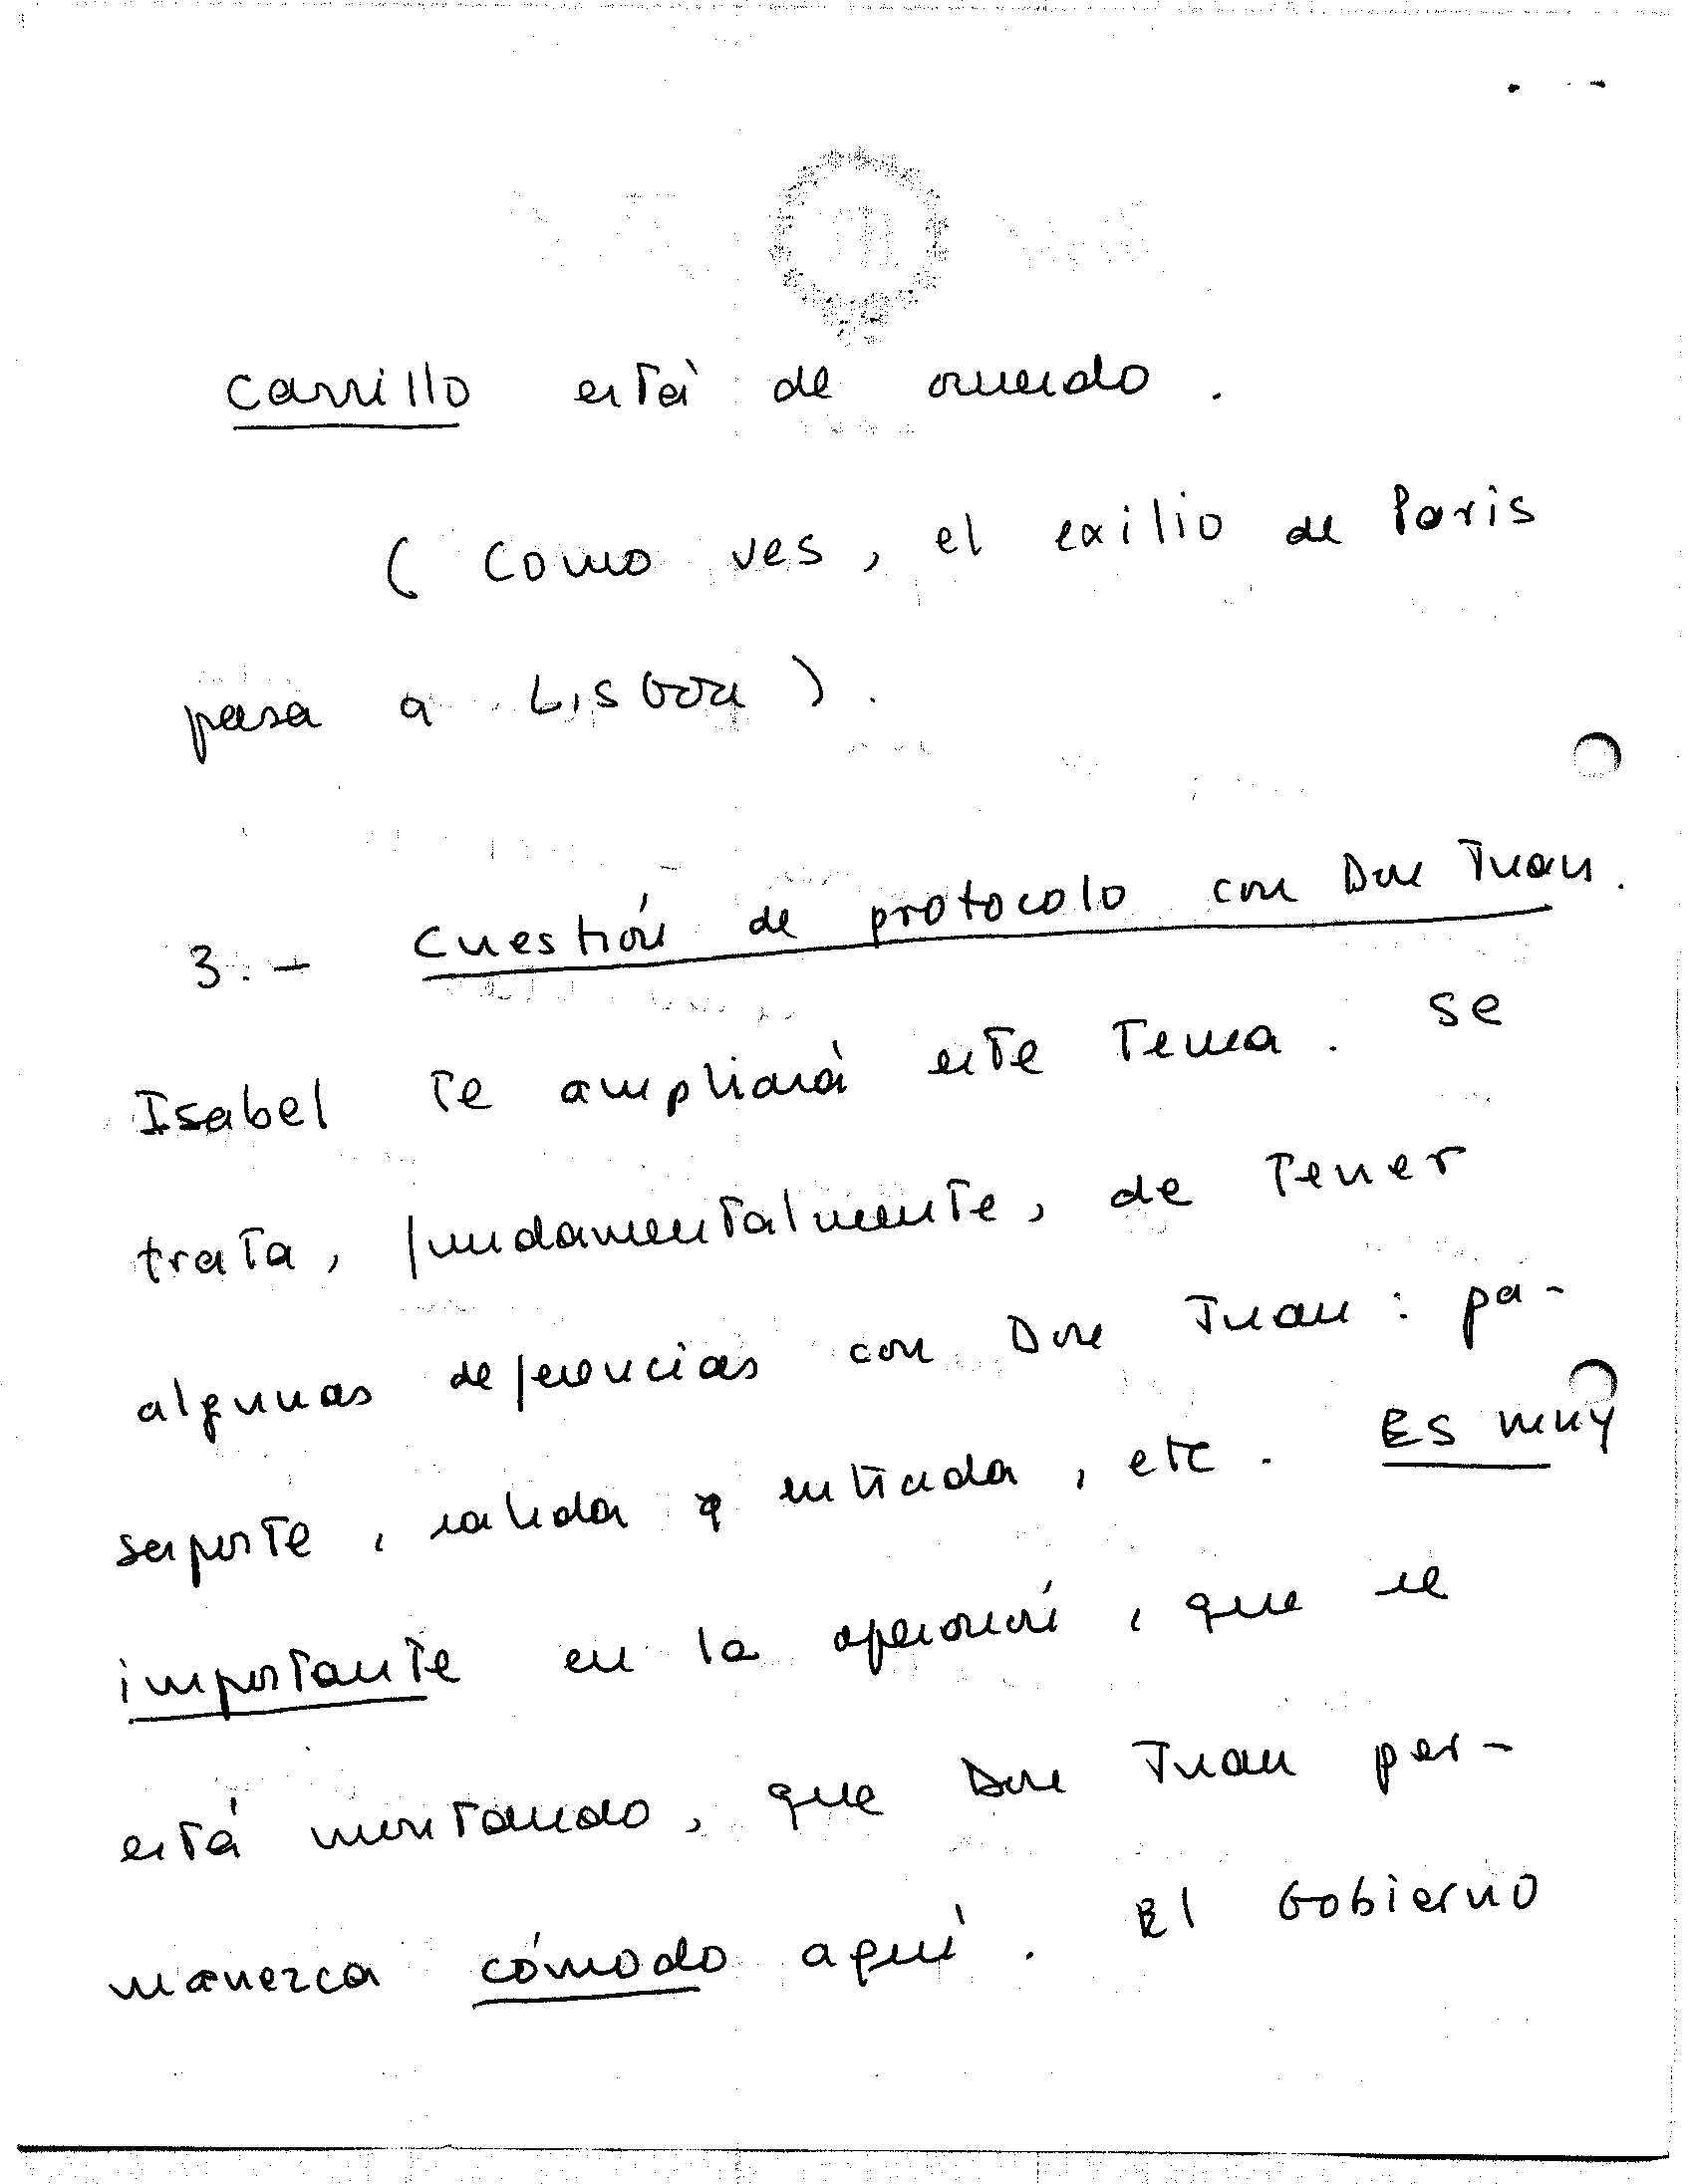 Carrillo está de acuerdo.
(Como ves, el exilio de Paris
pasa a Lisboa).
3.- Cuestión de protocolo con Don Juan.
Isabel te ampliará este tema. Se
trata, fundamentalmente, de tener
algunas deferencias con Don Juan: pa-
saporte, salida y entrada, etc. Es muy
importante en la operación, que se
está montando, que Don Juan per-
manezca cómodo aquí. El Gobierno